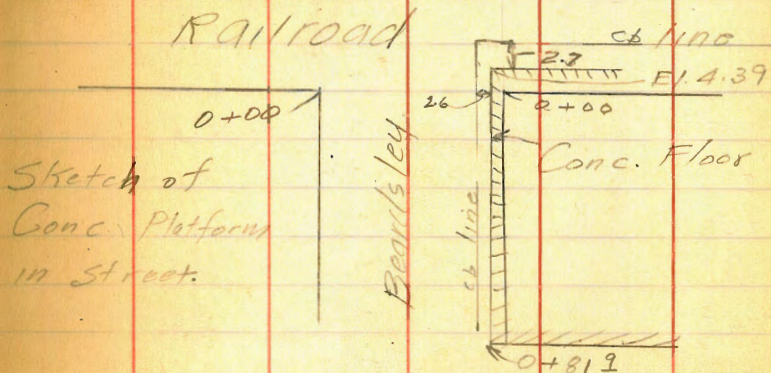 Railroad
cb line
2.7
El. 4.39
26
0+00
0+00
Conc. Floor
Sketch of
Conc. Platform
in Street.
Beardsley
cb line
0+819